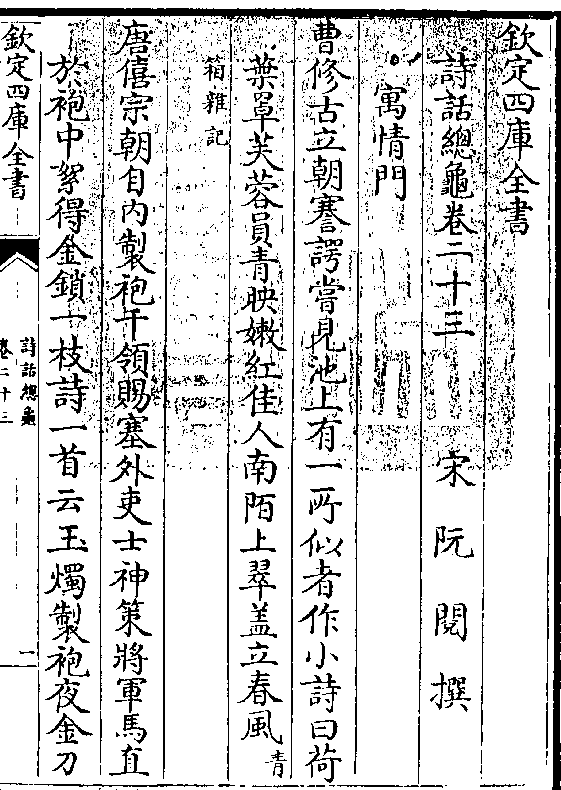 欽定四庫全書
詩話總龜卷二十三　宋　阮閱　撰
寓情門
曹修古立朝謇諤嘗見池上有一所似者作小詩曰荷
葉罩芙蓉員青映嫩紅佳人南陌上翠盖立春風青
箱雜記
唐僖宗朝自内製袍千領賜塞外吏士神策將軍馬直
於袍中絮得金鎖一枝詩一首云玉燭製袍夜金刀
欽定四庫全書
詩話總龜
卷二十三
一